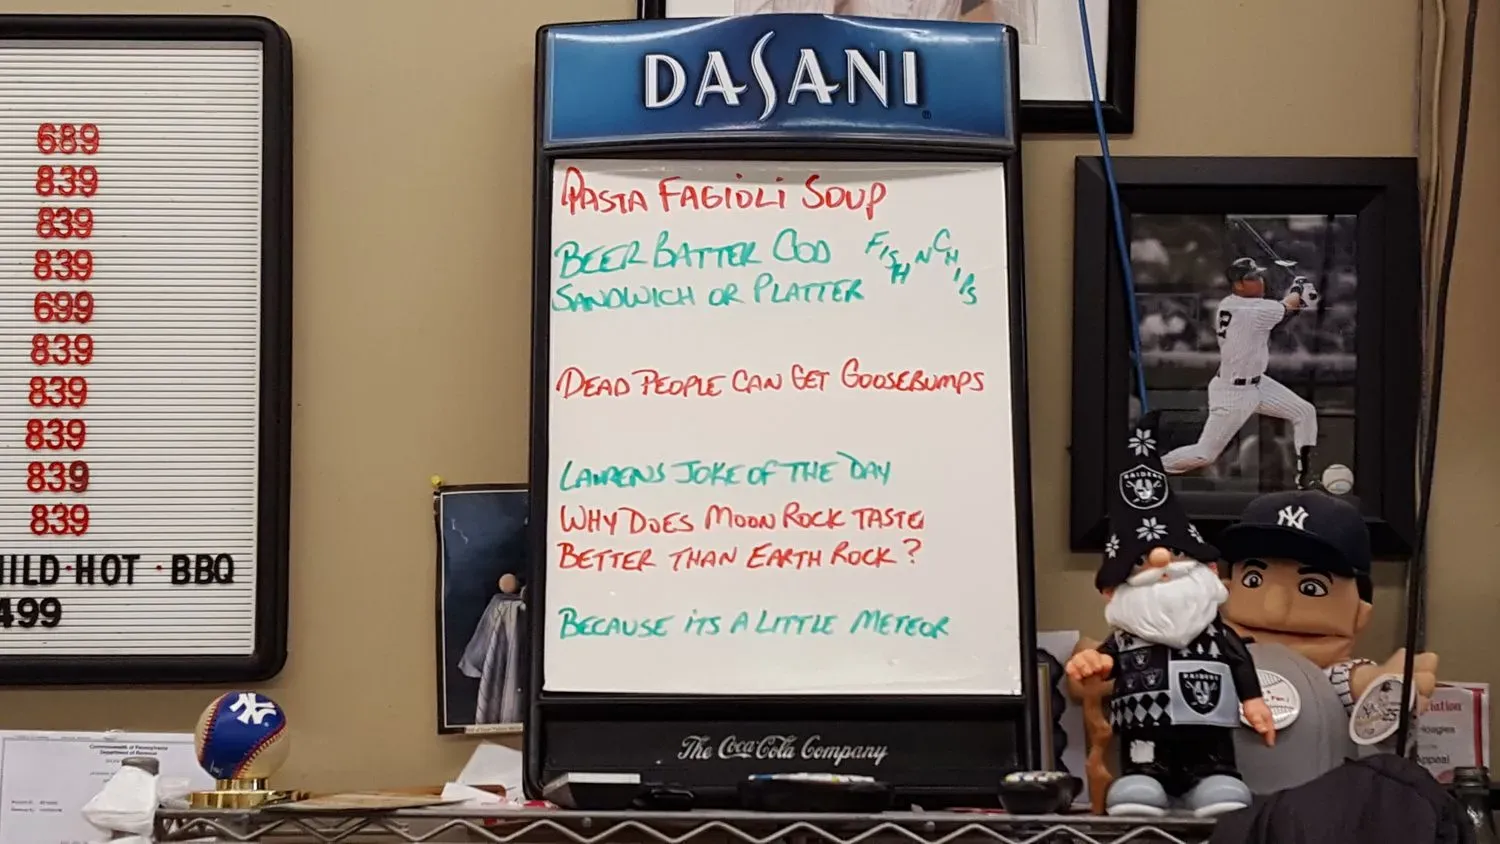 689
839
839
839
699
839
839
839
839
839
HOT · BBQ
499
DASANI
PASTA FAGIOLI SOUP
BEER BATTER COD FISH N CHIPS
SANDWICH OR PLATTER
DEAD PEOPLE CAN GET GOOSEBUMPS
LAURENS JOKE OF THE DAY
WHY DOES MOON ROCK TASTE
BETTER THAN EARTH ROCK?
BECAUSE ITS A LITTLE METEOR
The Coca-Cola Company
2
RAIDERS
RAIDERS
NY
NY
25
Commonwealth of Pennsylvania
Department of Revenue
Appeal